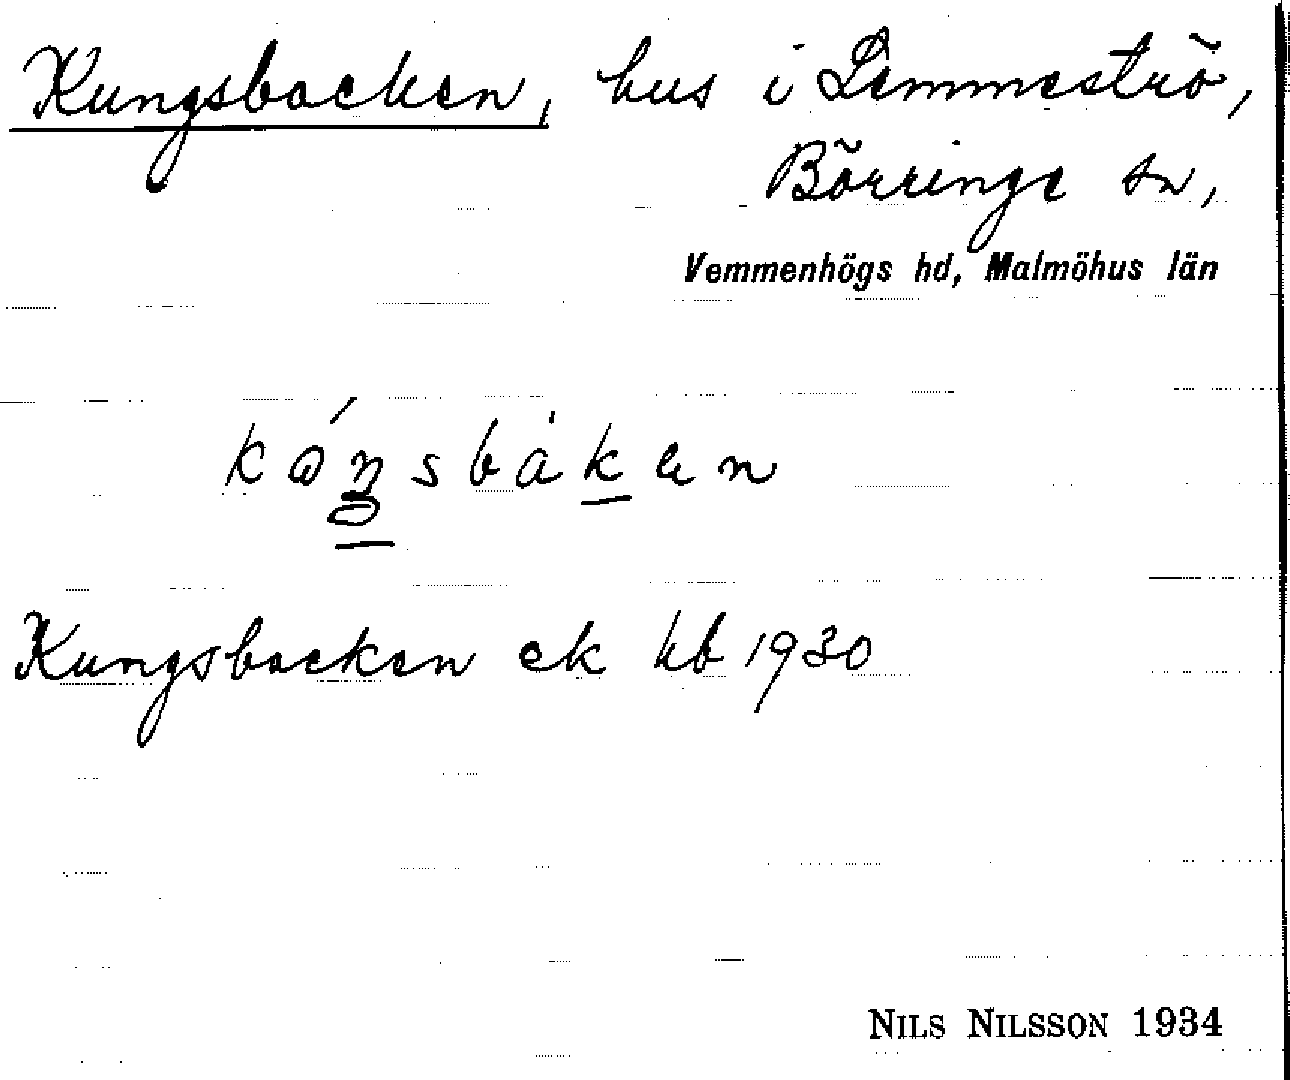 Kungsbacken, hus i Lemmeströ,
Börringe sn,
Vemmenhögs hd, Malmöhus län
Kungsbacken ek hb 1930
NILS NILSSON 1934